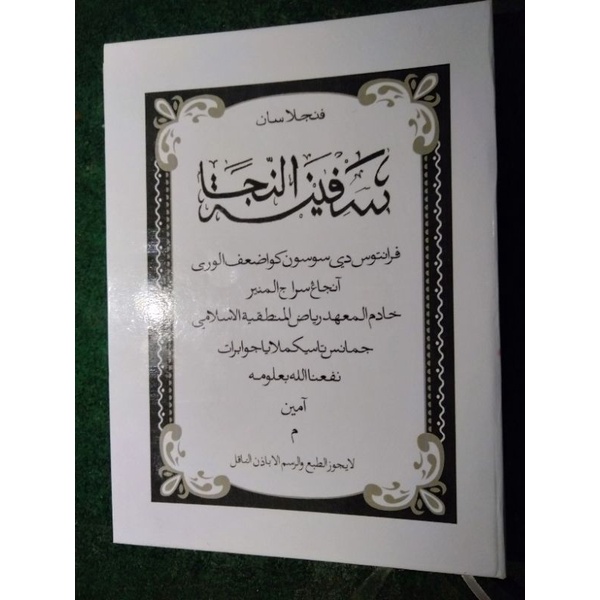 فنجلاسان
سفينة النجا
فرانتوس دي سوسون كو اضعف الورى
آنجاڠ سراج المنير
خادم المعهد رياض المنطقية الاسلامي
جمانس تاسيكملايا جوا برات
نفعنا الله بعلومه
آمين
م
لا يجوز الطبع والرسم الا باذن الناقل